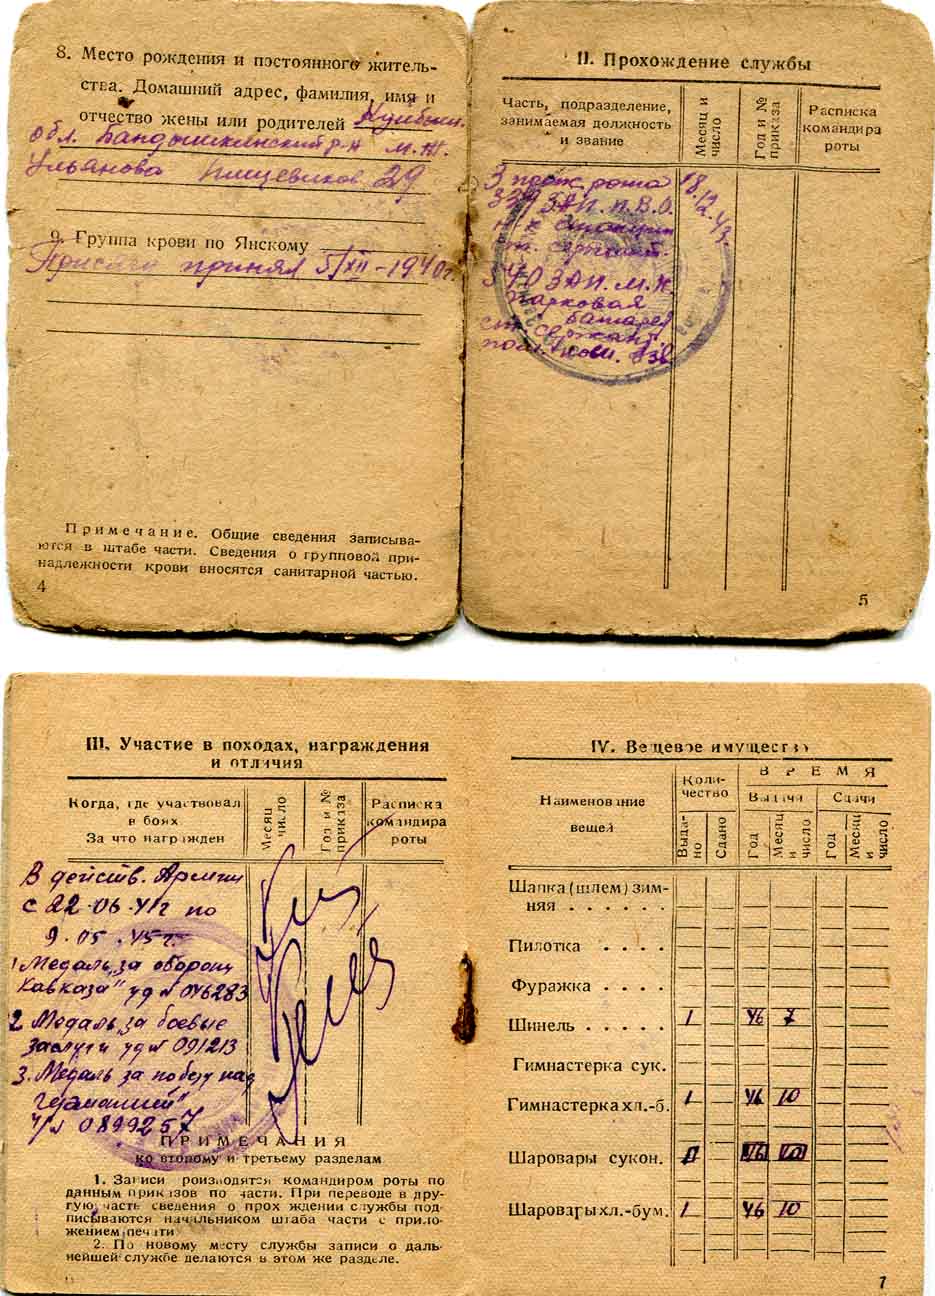 8. Место рождения и постоянного житель-
ства. Домашний адрес, фамилия, имя и
отчество жены или родителей Куйбыш.
обл.
Ульянова 29
9. Группа крови по Янскому
Присягу принял 5/XII-1940г.
Примечание. Общие сведения записыва-
ются в штабе части. Сведения о групповой при-
надлежности крови вносятся санитарной частью.
4
II. Прохождение службы
Часть, подразделение,
занимаемая должность
и звание
Месяц и
число
Год и №
приказа
Расписка
командира
роты
3 рота 18.12.43.
ЗАП. П.В.О.
340 ЗАП. М.К.
парковая
батарея
ст. сержант
5
III. Участие в походах, награждения
и отличия
Когда, где участвовал
в боях
За что награжден
Месяц
число
Год и №
приказа
Расписка
командира
роты
В действ. Армии
с 22.06.41г по
9.05.45г.
1 Медаль „за оборону
Кавказа" уд № 046283
2 Медаль „за боевые
заслуги уд № 091213
3. Медаль за победу над
Германией"
0899257
ПРИМЕЧАНИЯ
ко второму и третьему разделам
1. Записи производятся командиром роты по
данным приказов по части. При переводе в дру-
гую часть сведения о прохождении службы под-
писываются начальником штаба части с прило-
жением печати
2. По новому месту службы записи о даль-
нейшей службе делаются в этом же разделе.
IV. Вещевое имущество
Наименование
вещей
Коли-
чество
ВРЕМЯ
Выдачи
Сдачи
Выда-
но
Сдано
Год
Месяц
и
число
Год
Месяц
и
число
Шапка (шлем) зим-
няя . . . . . .
Пилотка . . . .
Фуражка . . . .
Шинель . . . . . 1 46 7
Гимнастерка сук.
Гимнастерка хл.-б. 1 46 10
Шаровары сукон. 46 10
Шаровары хл.-бум. 1 46 10
7